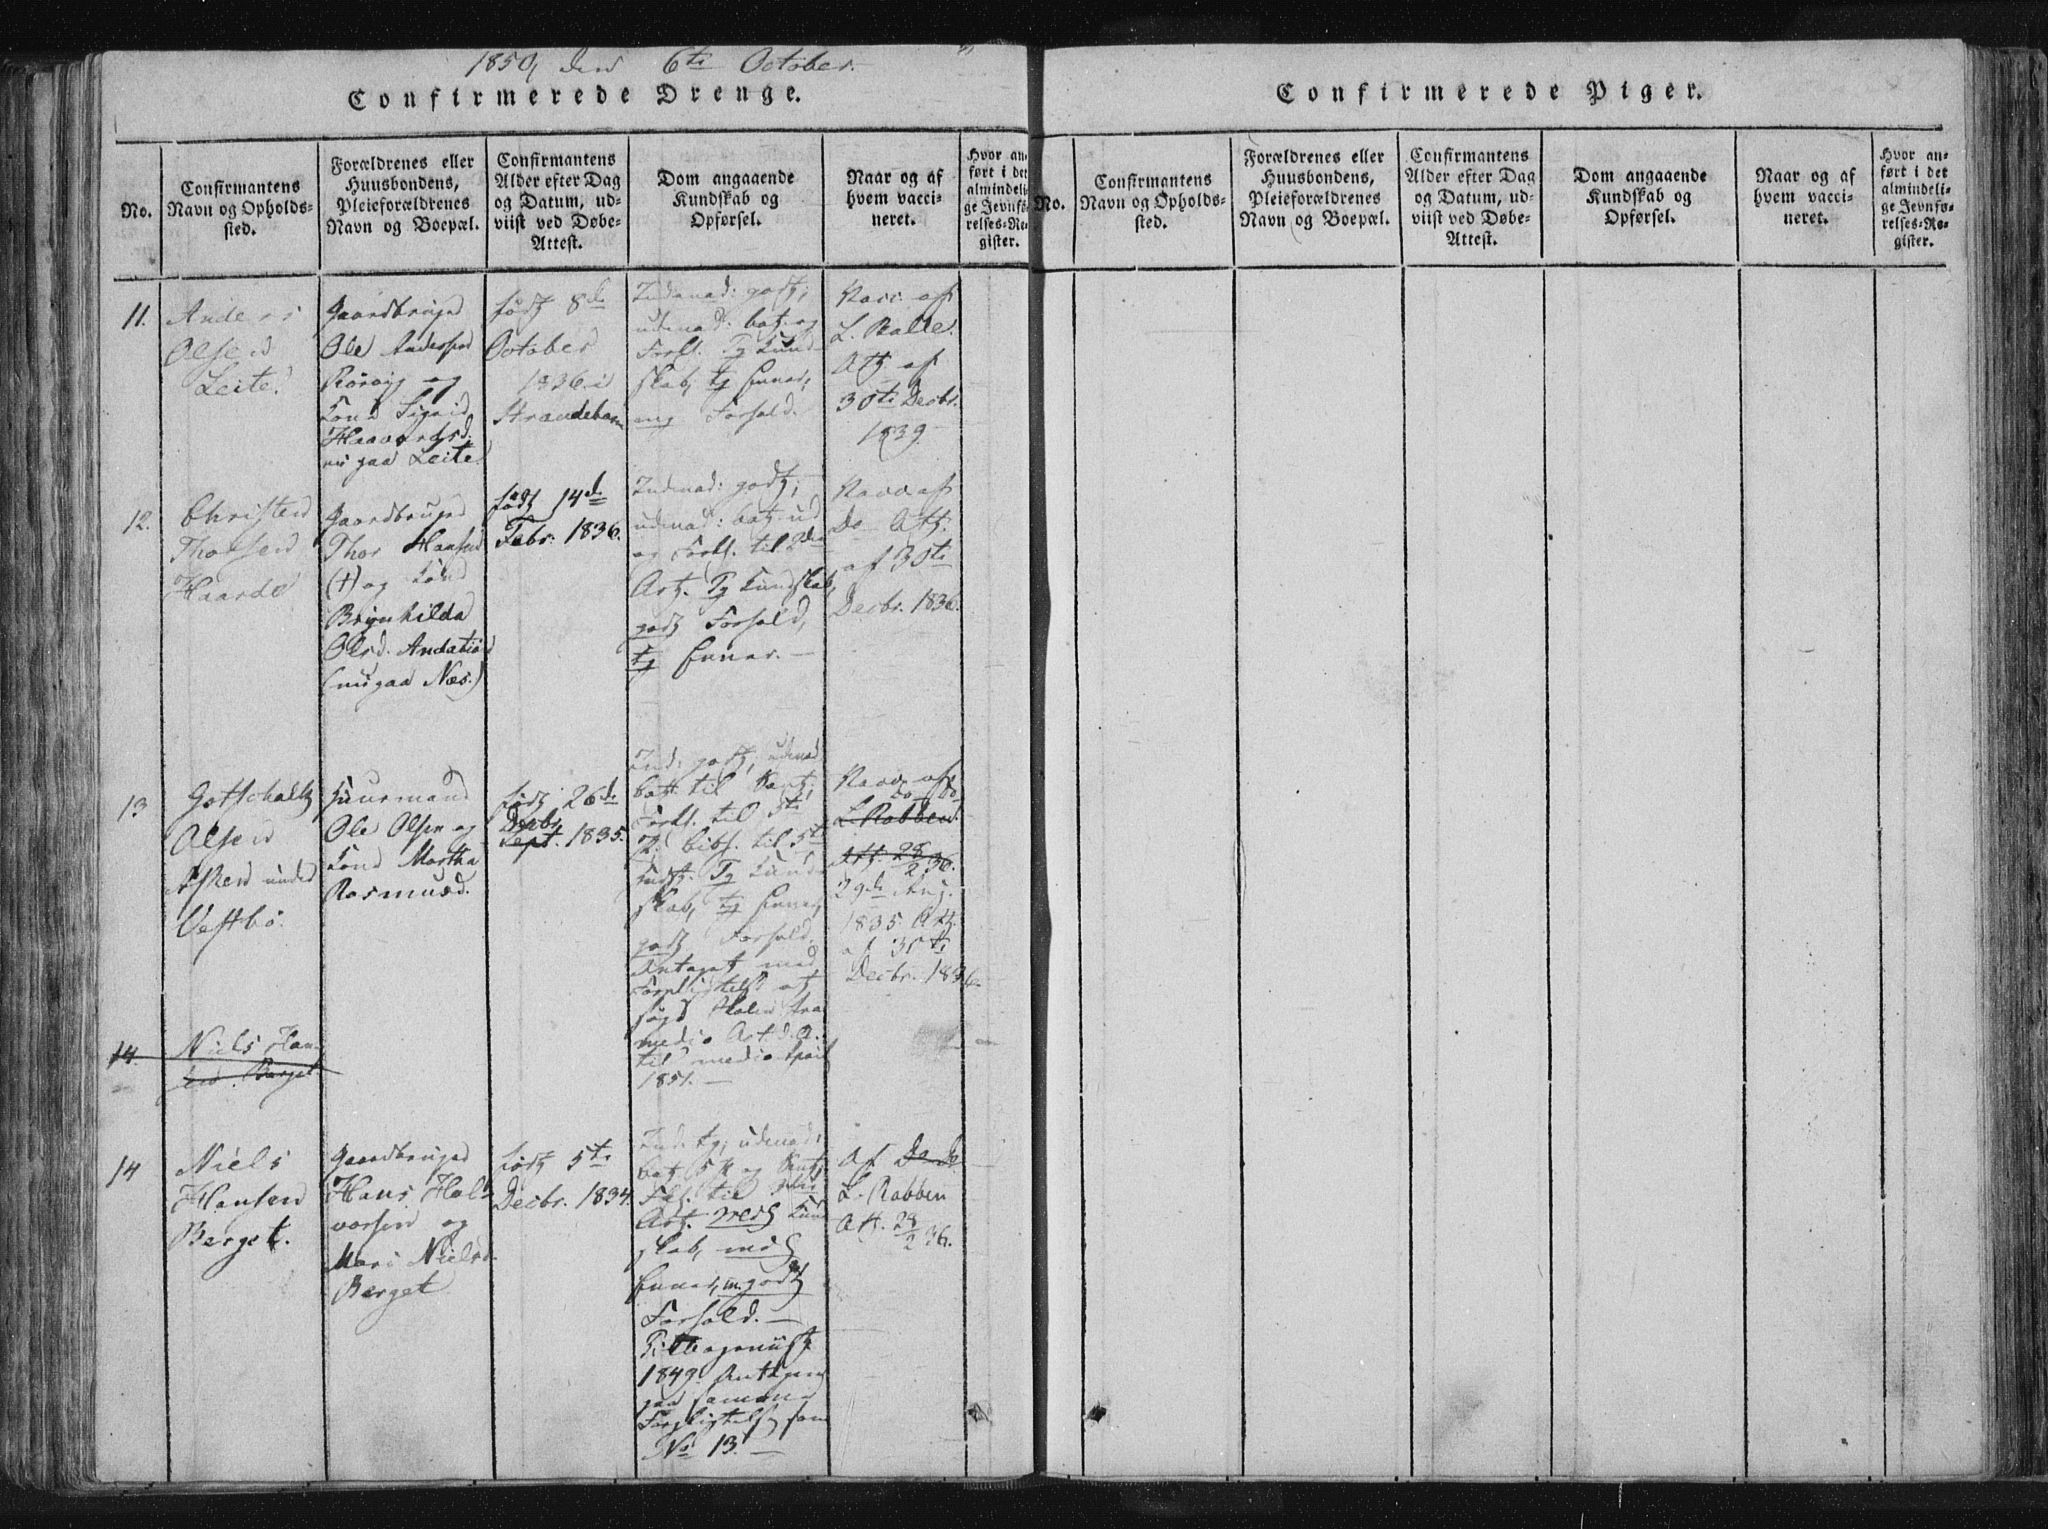 1850, den 6te October.
Confirmerede Drenge.
No.
Confirmantens
Navn og Opholds-
sted.
Forældrenes eller
Huusbondens,
Pleieforældrenes
Navn og Boepæl.
Confirmantens
Alder efter Dag
og Datum, ud-
viist ved Døbe-
Attest.
Dom angaaende
Kundskab og
Opførsel.
Naar og af
hvem vacci-
neret.
Hvor an-
ført i det
almindeli-
ge Jevnfø-
relses-Re-
gister.
11.
Anders
Olsen
Leite.
Gaardbruger
Ole Andersen
og
Kone Sigrid
Haavardsd.
nu paa Leite.
født 8de
October
1836 i
Strandebarm
Indenad: godt;
udenad: bat. og
Forkl. Tg Kund-
skab, tg Evner,
mg Forhold.
Vacc. af
L. Rolle.
Att. af
30te Decbr.
1839.
12.
Christen
Thorsen
Haarde
Gaardbruger
Thor Hansen
(†) og Kone
Brynhilda
Olsd.
(nu paa Næs.)
født 14de
Febr. 1836.
Indenad: godt;
udenad:
og Forkl. til 2den
Art. Tg Kundskab,
godt Forhold,
tg Evner. —
Vacc. af
Do Att.
af 30te
Decbr. 1836.
13
Gottschalk
Olsen
under
Vestbø.
Huusmand
Ole Olsen og
Kone Martha
Rasmusd.
født 26de
Decbr.
Sept. 1835.
Ind: godt, udenad
til
Forkl. til 5te
til 5te
Tg Kund-
skab, tg Evner,
godt Forhold.
Antaget med
Forpligtelse at
søge Skolen fra
medio Oct. d. A.
til medio April
1851. —
Vacc. af
do do
L. Robben.
Att. 28/2 36.
29de Aug.
1835 Att.
af 30te
Decbr. 1836.
14.
Niels Han-
sen Berget
14
Niels
Hansen
Berget.
Gaardbruger
Hans Hal-
vorsen og
Mari Nielsd.
Berget
født 5te
Decbr. 1834.
Ind: tg, udenad:
og
til
Art. Kund-
skab,
Evner, m. godt
Forhold. —
1849. Antagen
paa samme
Forpligtelse som
No 13. —
Af Do Do
L. Robben
Att. 28/2 36.
Confirmerede Piger.
No.
Confirmantens
Navn og Opholds-
sted.
Forældrenes eller
Huusbondens,
Pleieforældrenes
Navn og Boepæl.
Confirmantens
Alder efter Dag
og Datum, ud-
viist ved Døbe-
Attest.
Dom angaaende
Kundskab og
Opførsel.
Naar og af
hvem vacci-
neret.
Hvor an-
ført i det
almindeli-
ge Jevnfø-
relses-Re-
gister.